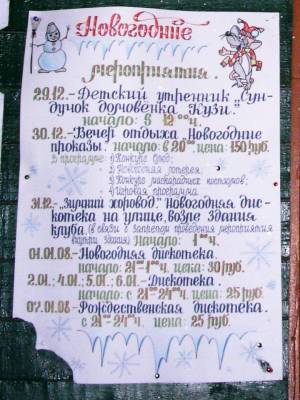 Новогодние
мероприятия.
29.12.-Детский утренник "Сун-
дучок домовёнка Кузи".
начало: в 12 00ч.
30.12.-Вечер отдыха "Новогодние
проказы". начало: в 20 00 цена: 150 руб.
В программе: 1) Конкурс блюд;
2) Новогодняя лотерея;
3) Конкурс маскарадных костюмов;
4) Игровая программа
31.12.-"Зимний хоровод." Новогодняя дис-
котека на улице, возле здания
клуба. (в связи с запретом проведения мероприятия
внутри здания) Начало: 1 00ч.
01.01.08-Новогодняя дискотека.
начало: 21-1 00ч. цена: 30 руб.
2.01.; 4.01.; 5.01.; 6.01.-Дискотека.
начало: с 21 00-24 00ч. цена: 25 руб.
07.01.08-Рождественская дискотека.
с 21 00-24 00ч. цена: 25 руб.